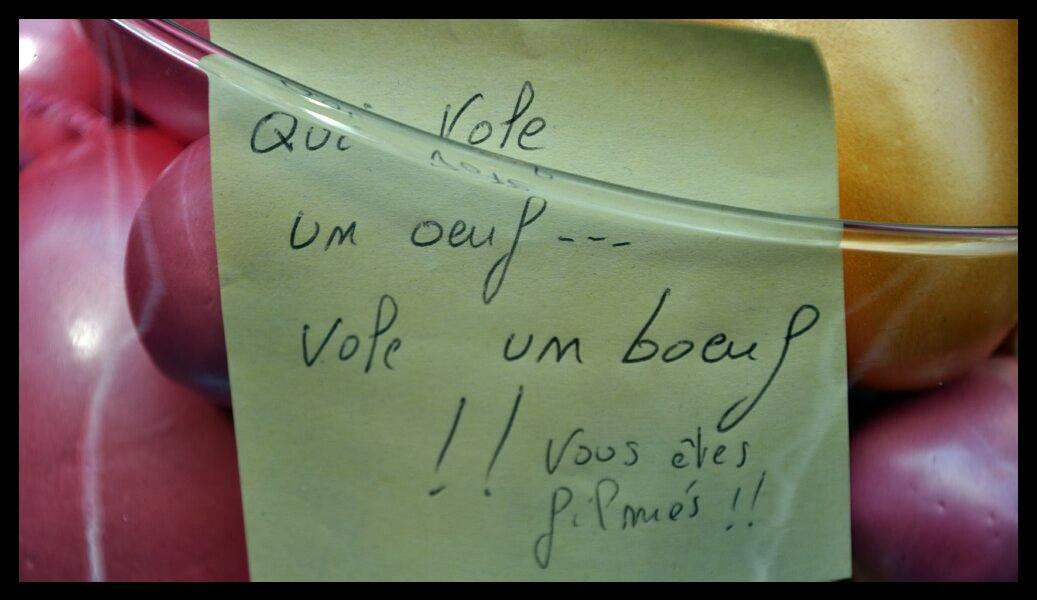 Qui vole
un oeuf ---
vole un boeuf
!! Vous êtes
filmés !!